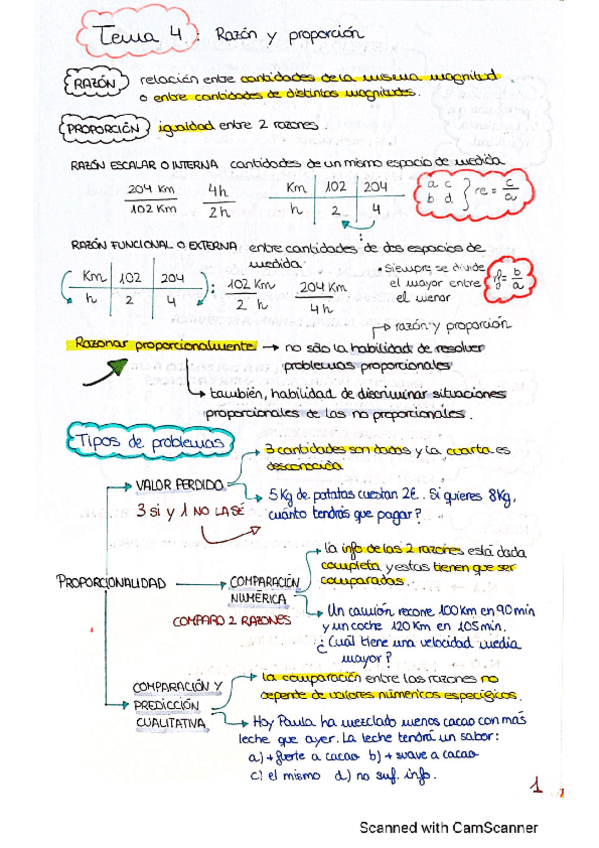 Tema 4: Razón y proporción
RAZÓN relación entre cantidades de la misma magnitud
o entre cantidades de distintas magnitudes.
PROPORCIÓN igualdad entre 2 razones.
RAZÓN ESCALAR O INTERNA cantidades de un mismo espacio de medida
204 Km / 102 Km 4h / 2h
Km 102 204
h 2 4
a c
b d } re = c/a
RAZÓN FUNCIONAL O EXTERNA entre cantidades de dos espacios de
medida.
Km 102 204
h 2 4
: 102 Km / 2 h 204 Km / 4 h
• Siempre se divide
el mayor entre
el menor
rf = b/a
→ razón y proporción
Razonar proporcionalmente → no sólo la habilidad de resolver
problemas proporcionales
→ también, habilidad de discriminar situaciones
proporcionales de las no proporcionales.
Tipos de problemas
PROPORCIONALIDAD
VALOR PERDIDO
3 SÍ Y 1 NO LA SÉ
3 cantidades son dadas y la cuarta es
desconocida
5 Kg de patatas cuestan 2€. Si quieres 8Kg,
cuánto tendrás que pagar?
COMPARACIÓN
NUMÉRICA
COMPARO 2 RAZONES
la info de las 2 razones está dada
completa y estas tienen que ser
comparadas.
Un camión recorre 100 Km en 90 min
y un coche 120 Km en 105 min.
¿Cuál tiene una velocidad media
mayor?
COMPARACIÓN Y
PREDICCIÓN
CUALITATIVA
la comparación entre las razones no
depende de valores númericos específicos.
Hoy Paula ha mezclado menos cacao con más
leche que ayer. La leche tendrá un sabor:
a) + fuerte a cacao b) + suave a cacao
c) el mismo d) no suf. info.
1
Scanned with CamScanner